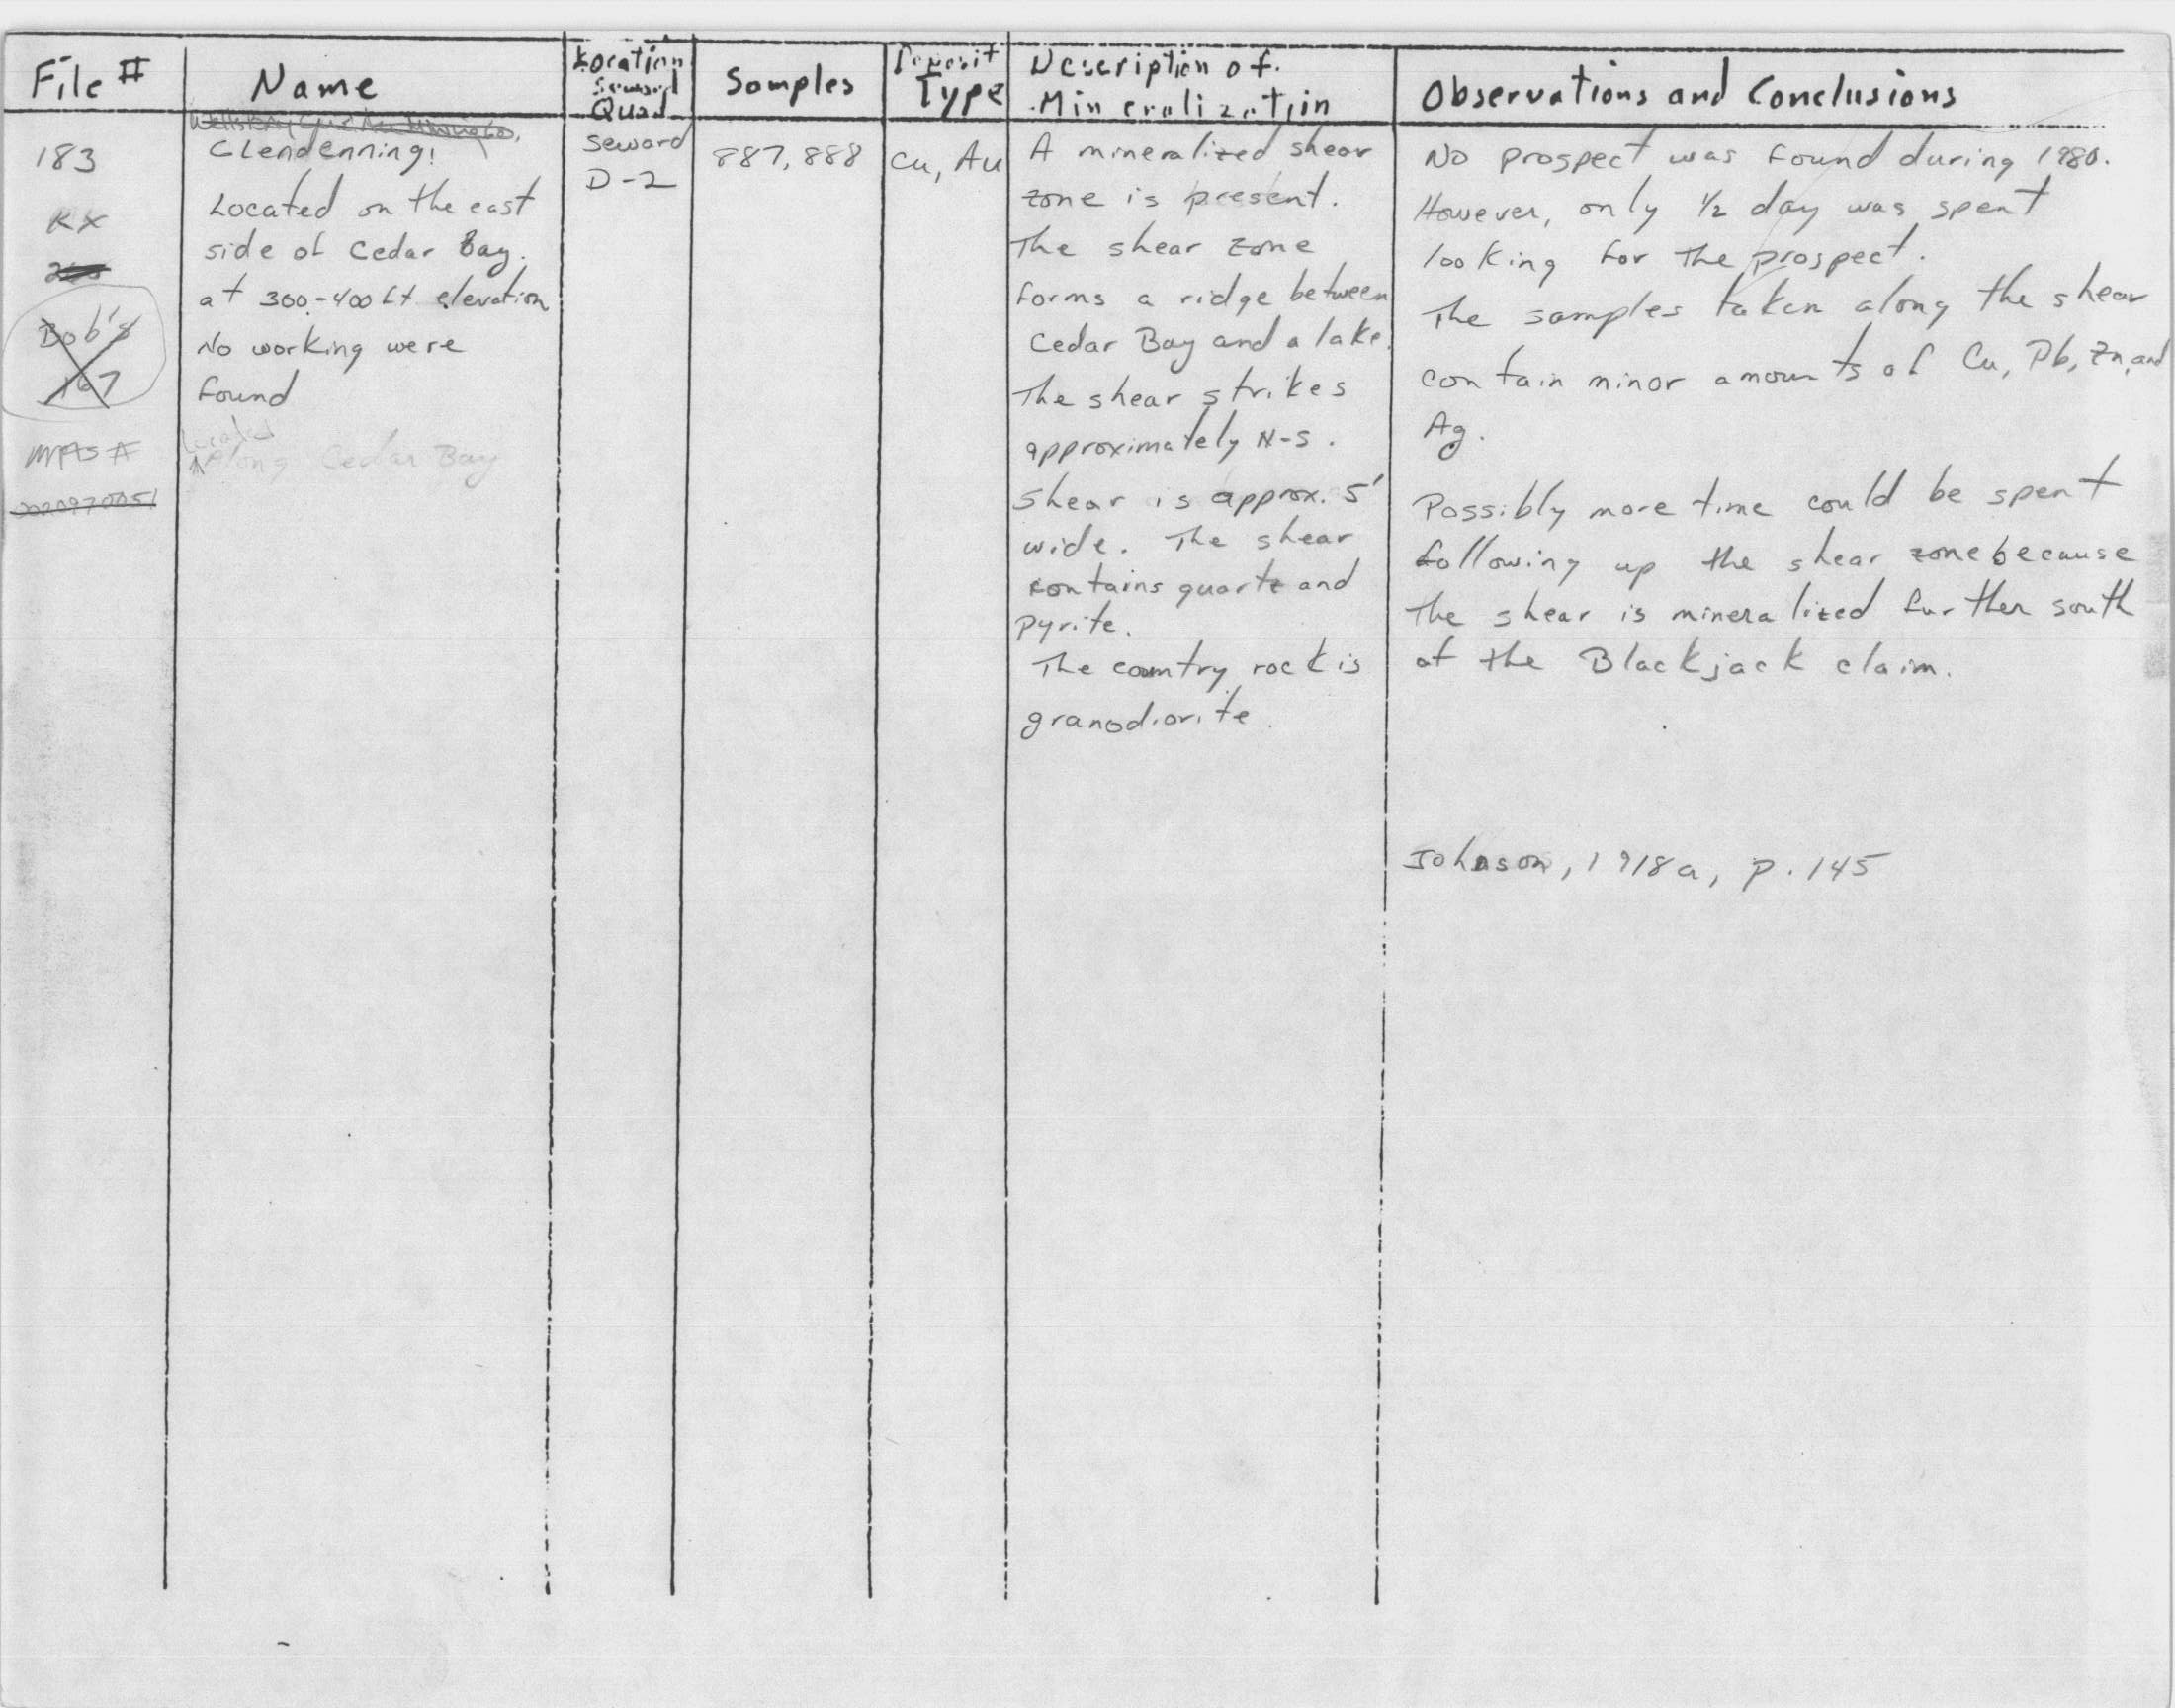 File #
Name
Location
Seward
Quad
Samples
Deposit
Type
Description of
Mineralization
Observations and Conclusions
183
KX
Bob's
167
MAS #
Clendenning!
Located on the east
side of Cedar Bay.
at 300-400 ft elevation
No working were
found
Located
along Cedar Bay
Seward
D-2
887, 888
Cu, Au
A mineralized shear
zone is present.
The shear zone
forms a ridge between
Cedar Bay and a lake.
The shear strikes
approximately N-S.
Shear is approx. 5'
wide. The shear
contains quartz and
pyrite.
The country rock is
granodiorite.
No prospect was found during 1980.
However, only 1/2 day was spent
looking for the prospect.
The samples taken along the shear
contain minor amounts of Cu, Pb, Zn, and
Ag.
Possibly more time could be spent
following up the shear zone because
the shear is mineralized further south
at the Blackjack claim.
Johnson, 1918a, p. 145